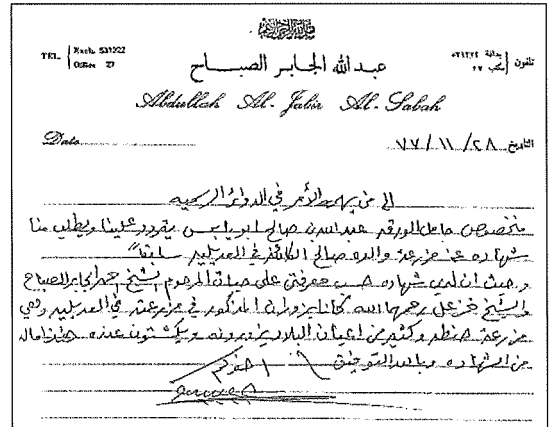 بسم الله الرحمن الرحيم
TEL. Exch. 531222
Office 27
تلفون بدالة ٥٣١٢٢٢
مكتب ٢٧
عبدالله الجابر الصباح
Abdullah Al-Jabir Al-Sabah
Date
التاريخ ٢٨/١١/٧٧
الى من يهمه الأمر في الدوائر الرسميه
بخصوص حامل الورقه عبدالله بن صالح ابو يابس يتردد علينا ويطلب منا
شهاده عن مزرعة والده صالح الكائنة في العديليه سابقا"
وحيث ان لدي شهاده حسب معرفتي على حياة المرحوم الشيخ حمد الجابر الصباح
والشيخ خزعل رحمهما الله كانا يزوران المذكور في مزرعته في العديليه وهي
مزرعة حنطه وكثير من اعيان البلاد يزورونه ويكشتون عنده هذا مالدي
من الشهاده وبالله التوفيق